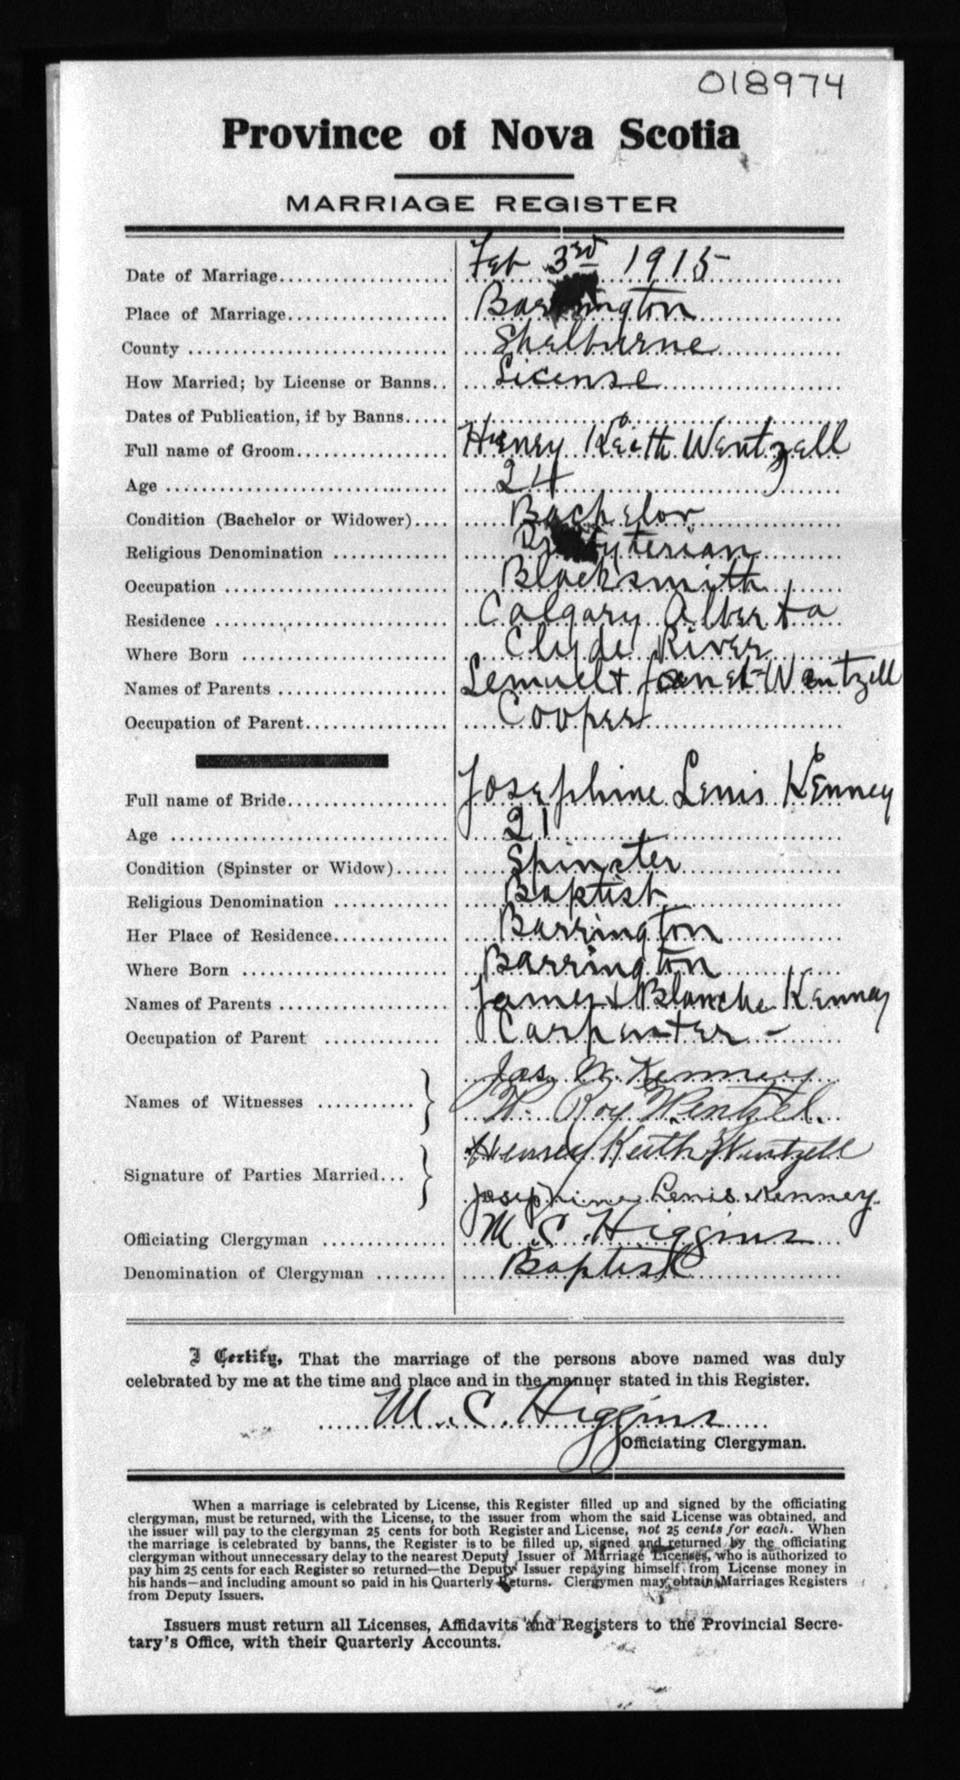 018974
Province of Nova Scotia
MARRIAGE REGISTER
Date of Marriage.................... Feb 3rd 1915
Place of Marriage................... Barrington
County ............................. Shelburne
How Married; by License or Banns.. License
Dates of Publication, if by Banns.....
Full name of Groom.................. Henry Keith Wentzell
Age ................................ 24
Condition (Bachelor or Widower).... Bachelor
Religious Denomination ............. Presbyterian
Occupation ......................... Blacksmith
Residence .......................... Calgary Alberta
Where Born ......................... Clyde River
Names of Parents ................... Lemuel & Janet Wentzell
Occupation of Parent................ Cooper
Full name of Bride.................. Josephine Lenis Kenney
Age ................................ 21
Condition (Spinster or Widow)...... Spinster
Religious Denomination ............. Baptist
Her Place of Residence.............. Barrington
Where Born ......................... Barrington
Names of Parents ................... James & Blanche Kenney
Occupation of Parent ............. Carpenter -
Jas. W. Kenney
Names of Witnesses ........... } W. Roy Wentzel.
Henry Keith Wentzell
Signature of Parties Married... } Josephine Lenis Kenney.
Officiating Clergyman .............. M. C. Higgins
Denomination of Clergyman ........ Baptist
I Certify, That the marriage of the persons above named was duly
celebrated by me at the time and place and in the manner stated in this Register.
M. C. Higgins
Officiating Clergyman.
When a marriage is celebrated by License, this Register filled up and signed by the officiating
clergyman, must be returned, with the License, to the issuer from whom the said License was obtained, and
the issuer will pay to the clergyman 25 cents for both Register and License, not 25 cents for each. When
the marriage is celebrated by banns, the Register is to be filled up, signed and returned by the officiating
clergyman without unnecessary delay to the nearest Deputy Issuer of Marriage Licenses, who is authorized to
pay him 25 cents for each Register so returned—the Deputy Issuer repaying himself from License money in
his hands—and including amount so paid in his Quarterly Returns. Clergymen may obtain Marriages Registers
from Deputy Issuers.
Issuers must return all Licenses, Affidavits and Registers to the Provincial Secre-
tary's Office, with their Quarterly Accounts.